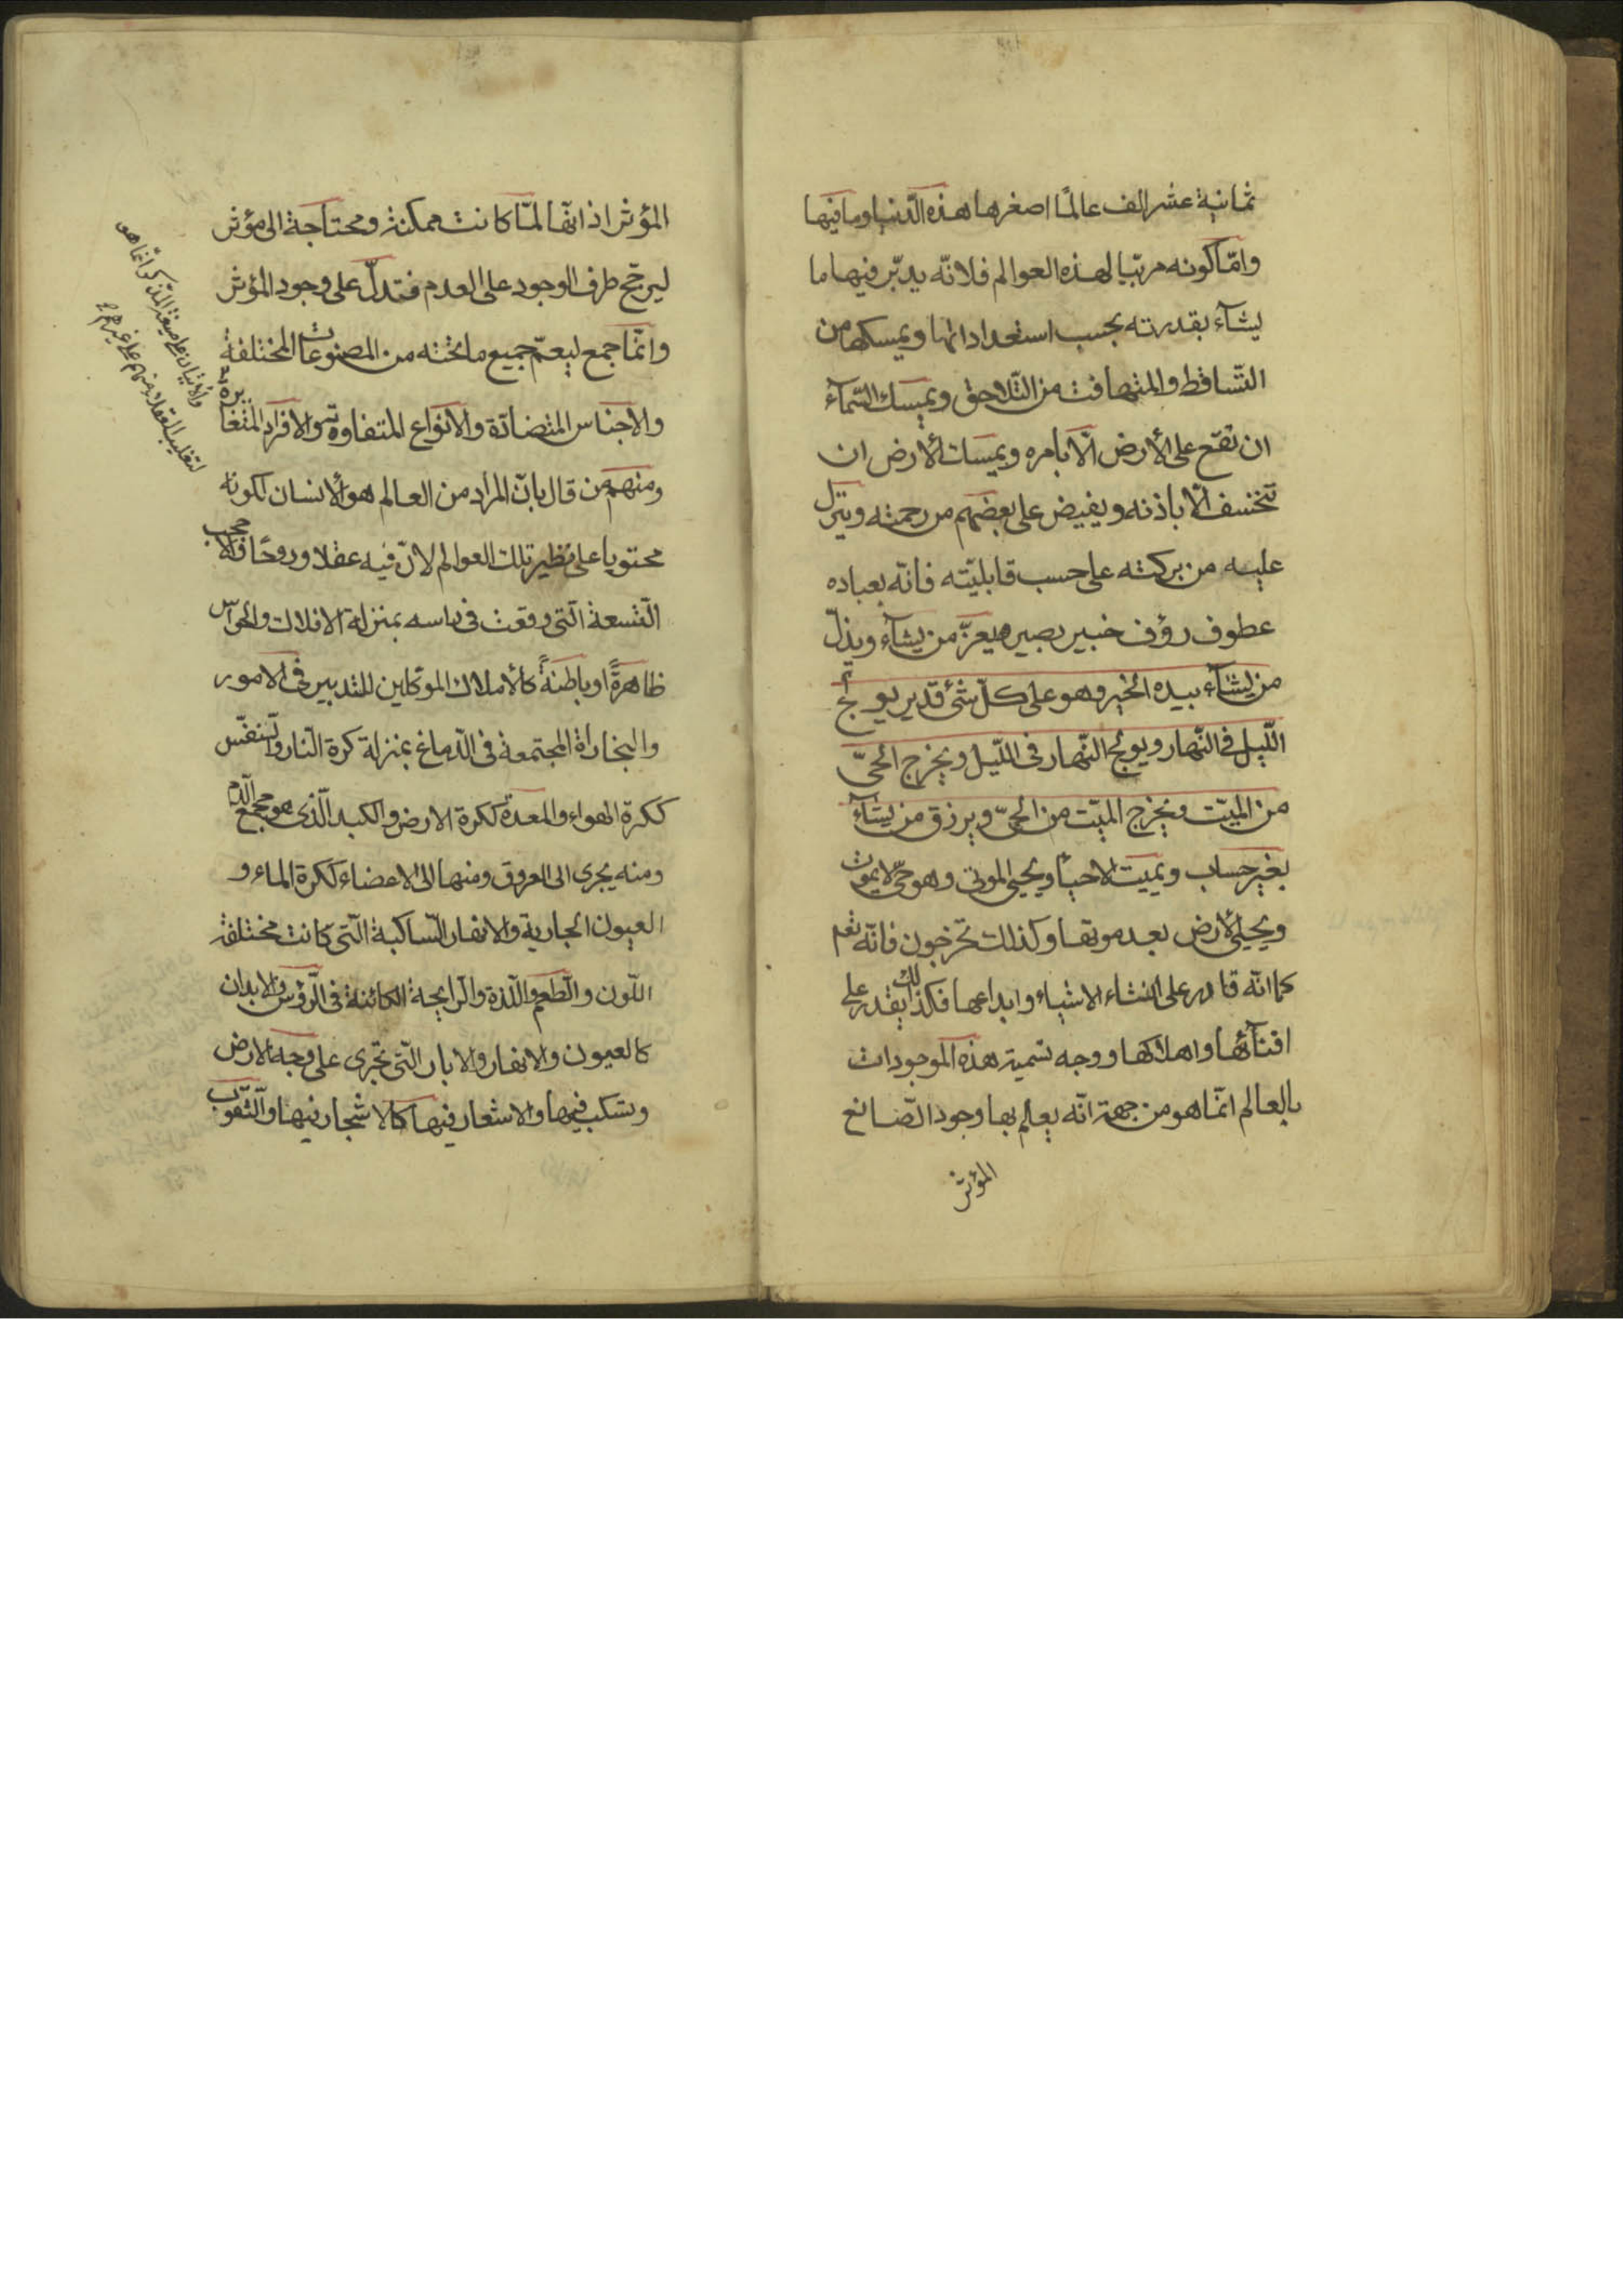 ثمانية عشر الف عالمًا اصغرها هذه الدّنيا وما فيها
وامّا كونه مربّيا لهذه العوالم فلانّه يدبّر فيها ما
يشآء بقدرته بحسب استعداداتها ويمسكها من
التّساقط والمتهافت من التّلاحق ويمسك السّمآء
ان تقع على الأرض الّا بامره ويمسك الأرض ان
تنخسف الّا باذنه ويفيض على بعضهم من رحمته وينزل
عليه من بركته على حسب قابليّته فانّه بعباده
عطوف رؤف خبير بصير يعزّ من يشآء ويذلّ
من يشآء بيده الخير وهو على كلّ شئ قدير يولج
اللّيل فى النّهار ويولج النّهار فى اللّيل ويخرج الحىّ
من الميّت ويخرج الميّت من الحىّ ويرزق من يشآء
بغير حساب ويميت الاحيآ ويحيى الموتى وهو حىّ لا يموت
ويحيى الأرض بعد موتها وكذلك تخرجون فانّه تعم
كما انّه قادر على انشاء الاشياء وابداعها فكذلك يقدر على
افنآئها واهلاكها ووجه تسمية هذه الموجودات
بالعالم انّما هو من جهة انّه يعلم بها وجود الصّانع
المؤثر
المؤثر اذ انّها لمّا كانت ممكنة ومحتاجة الى مؤثر
ليرجّح طرف الوجود على العدم فتدلّ على وجود المؤثر
وانّما جمع ليعمّ جميع ما تحته من المصنوعات المختلفة
والاجناس المتضادّة والانواع المتفاوتة والافراد المتغايرة
ومنهم من قال بانّ المراد من العالم هو الأنسان لكونه
محتويا على نظير تلك العوالم لانّ فيه عقلا وروحًا فالحجب
التّسعة الّتى وقعت فى راسه بمنزلة الافلاك والحواسّ
ظاهرةً او باطنةً كالأملاك الموكلين للتدبير فى الامور
والبخاراة المجتمعة فى الدّماغ بمنزلة كرة النّار والتّنفّس
ككرة الهواء والمعدة ككرة الارض والكبد الّذى هو مجمع الدّم
ومنه يجرى الى العروق ومنها الى الاعضاء ككرة الماء و
العيون الجارية والانهار السّاكبة الّتى كانت مختلفة
اللّون والطّعم واللّذة والرّايحة الكائنة فى الرّؤس والابدان
كالعيون والانهار والابار الّتى تجرى على وجه الارض
وتسكب فيها والاشعار فيها كالاشجار فيها والثّقوب
والأتيان على صيغة المذكر انّما هو
لتغليب العقلاء منهم على غيرهم